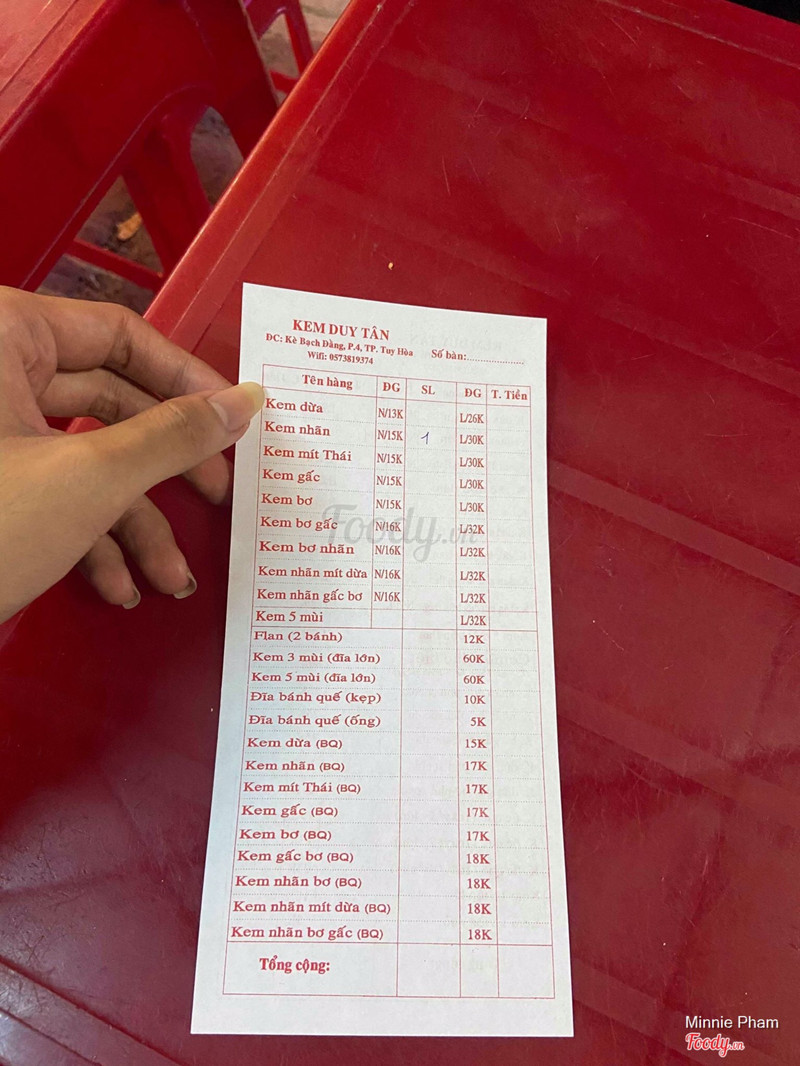 KEM DUY TÂN
ĐC: Kè Bạch Đằng, P.4, TP. Tuy Hòa
Wifi: 0573819374
Số bàn:......................
Tên hàng ĐG SL ĐG T. Tiền
Kem dừa N/13K L/26K
Kem nhãn N/15K 1 L/30K
Kem mít Thái N/15K L/30K
Kem gấc N/15K L/30K
Kem bơ N/15K L/30K
Kem bơ gấc N/16K L/32K
Kem bơ nhãn N/16K L/32K
Kem nhãn mít dừa N/16K L/32K
Kem nhãn gấc bơ N/16K L/32K
Kem 5 mùi L/32K
Flan (2 bánh) 12K
Kem 3 mùi (đĩa lớn) 60K
Kem 5 mùi (đĩa lớn) 60K
Đĩa bánh quế (kẹp) 10K
Đĩa bánh quế (ống) 5K
Kem dừa (BQ) 15K
Kem nhãn (BQ) 17K
Kem mít Thái (BQ) 17K
Kem gấc (BQ) 17K
Kem bơ (BQ) 17K
Kem gấc bơ (BQ) 18K
Kem nhãn bơ (BQ) 18K
Kem nhãn mít dừa (BQ) 18K
Kem nhãn bơ gấc (BQ) 18K
Tổng cộng:
Foody.vn
Minnie Pham
Foody.vn